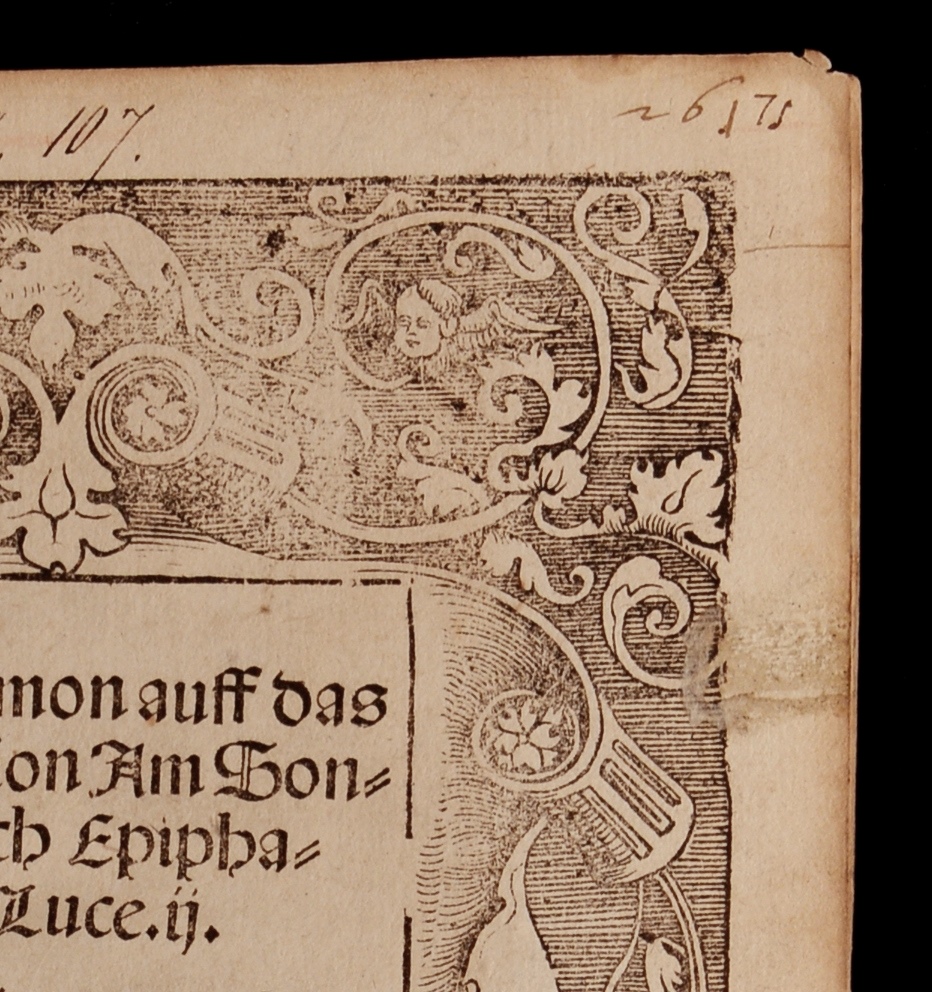 107.
mon auff das
Am Son⸗
ch Epipha⸗
Luce.ij.